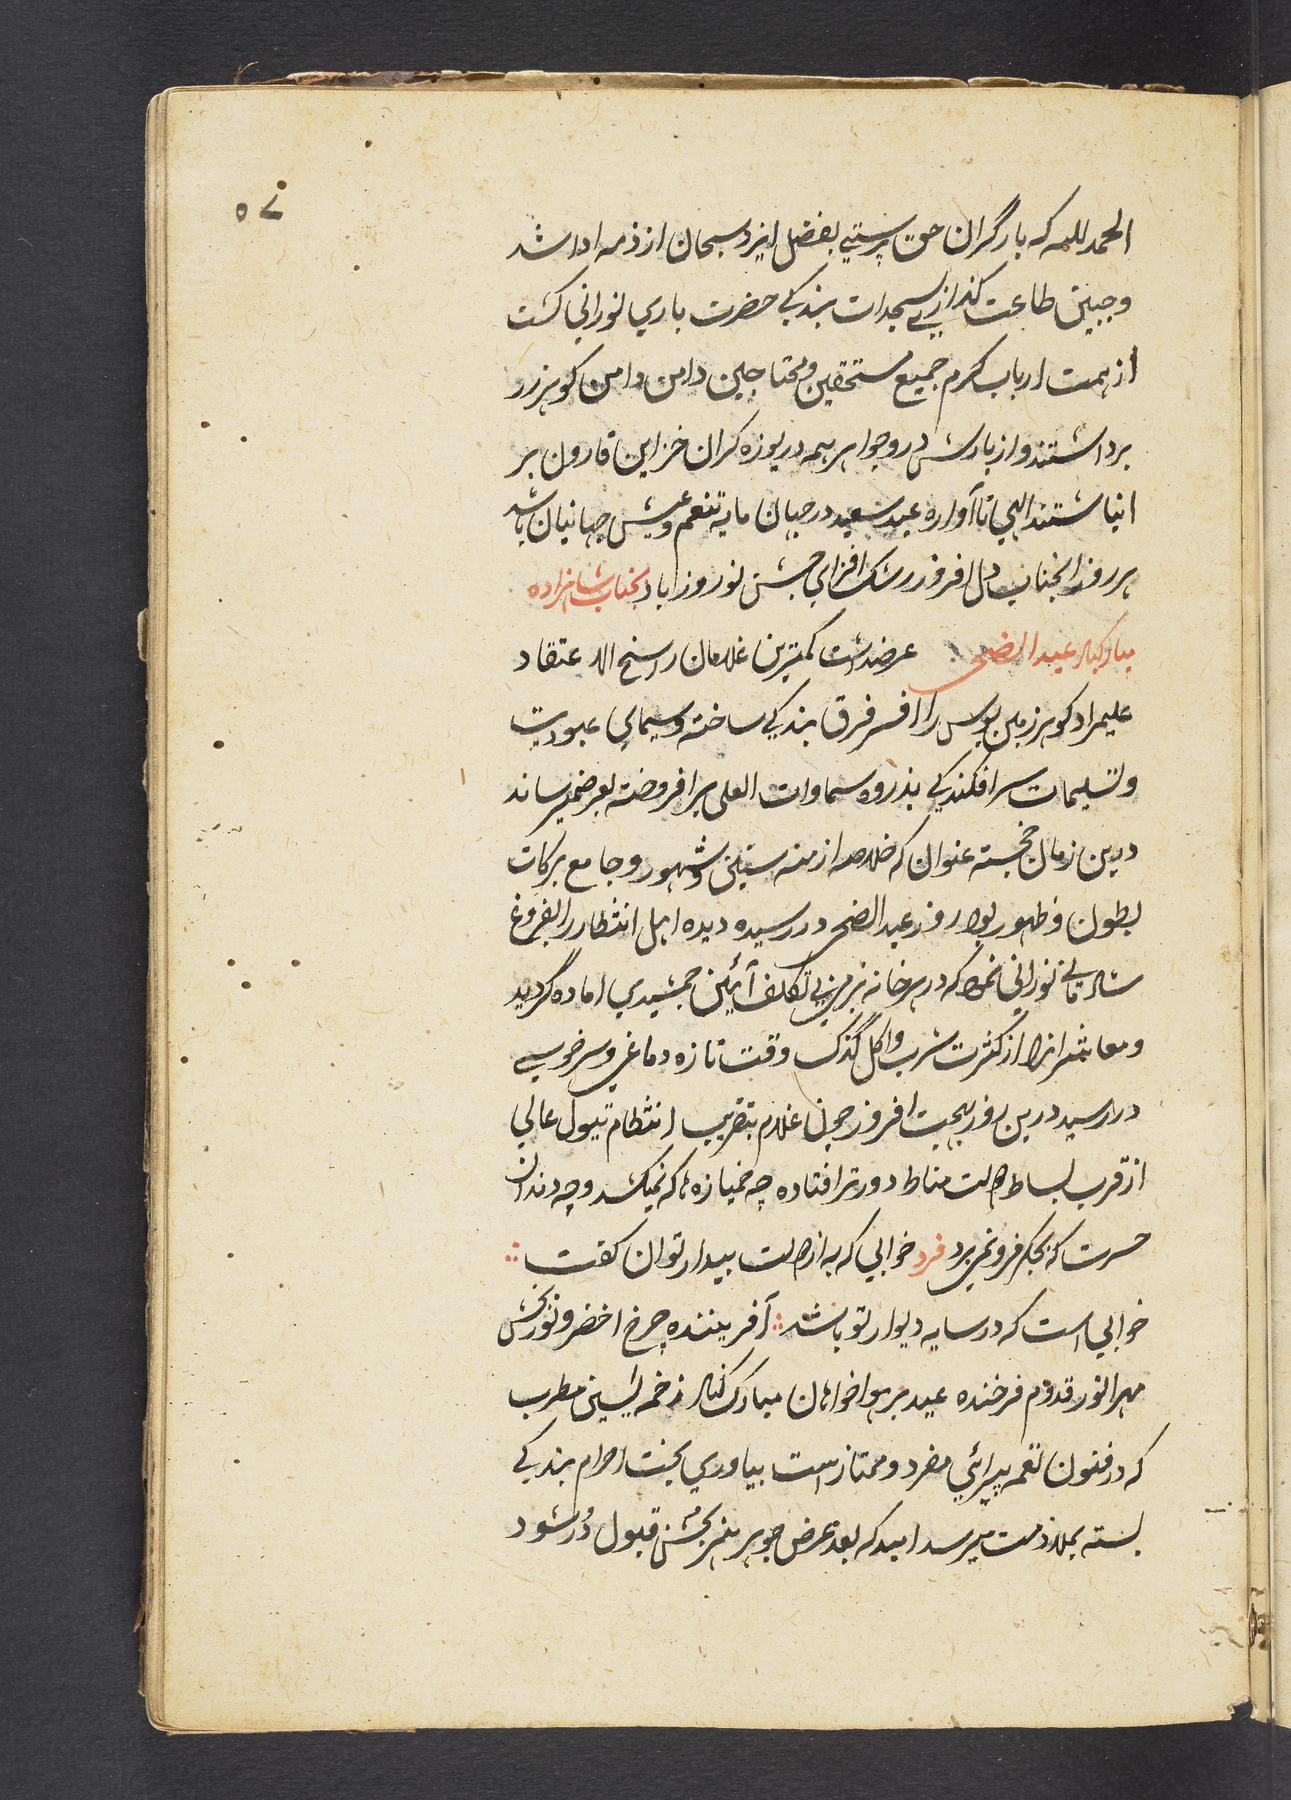 ۵۷
الحمد لله که بار گران حق پرستی بفضل ایزد سبحان از ذمه ادا شد
و جبین طاعت گذاری سجدات بندگی حضرت باری نورانی کشت
از همت ارباب کرم جمیع مستحقین و محتاجین دامن دامن کوهر زر
برداشتند و از بارش در و جواهر همه دریوزه کران خزاین قارون بر
انباشتند الهی تا آواره عید سعید در جهان مایه تنعم و عیش جهانیان باشد
هر روز انجناب دل افروز رشک افزای جشن نوروز باد بجناب شاهزاده
مبارکباد عید الضحی عرضداشت کمترین غلامان راسخ الاعتقاد
علیمراد کوهر زمین بوس را افسر فرق بندگی ساخته و سیمای عبودیت
و تسلیمات سرافکندگی بذروه سماوات العلی برافروخته بعرض میرساند
درین زمان خجسته عنوان که خلاصه ازمنه سنین و شهور و جامع برکات
بطون و ظهور بود روز عید الضحی در رسیده دیده اهل انتظار را بفروغ
شادمانی نورانی نمود که در هر خانه بزمی بی تکلف آئین جمشیدی اماده گردید
و معاشرانرا از کثرت شرب و اکل گزک وقت تازه دماغی و سرخوسی
در رسید درین روز بهجت افروز چون غلام بتقریب انتظام تیول عالی
از قرب بساط دولت مناط دورتر افتاده چه خمیازه ها که نمیکشد و چه دندان
حسرت که بجکر فرو نمی برد فرد خوابی که به از دولت بیدار توان کفت
خوابی است که در سایه دیوار تو باشد آفریننده چرخ اخضر و نوربخش
مهر انور قدوم فرخنده عید بر هواخواهان مبارک کناد زخمه مطرب
که در فنون نغمه پیرائی مفرد و ممتاز است بیاوری بخت احرام بندگی
بسته بملازمت میرسد امید که بعد عرض جوهر هنر بخشن قبول در شود